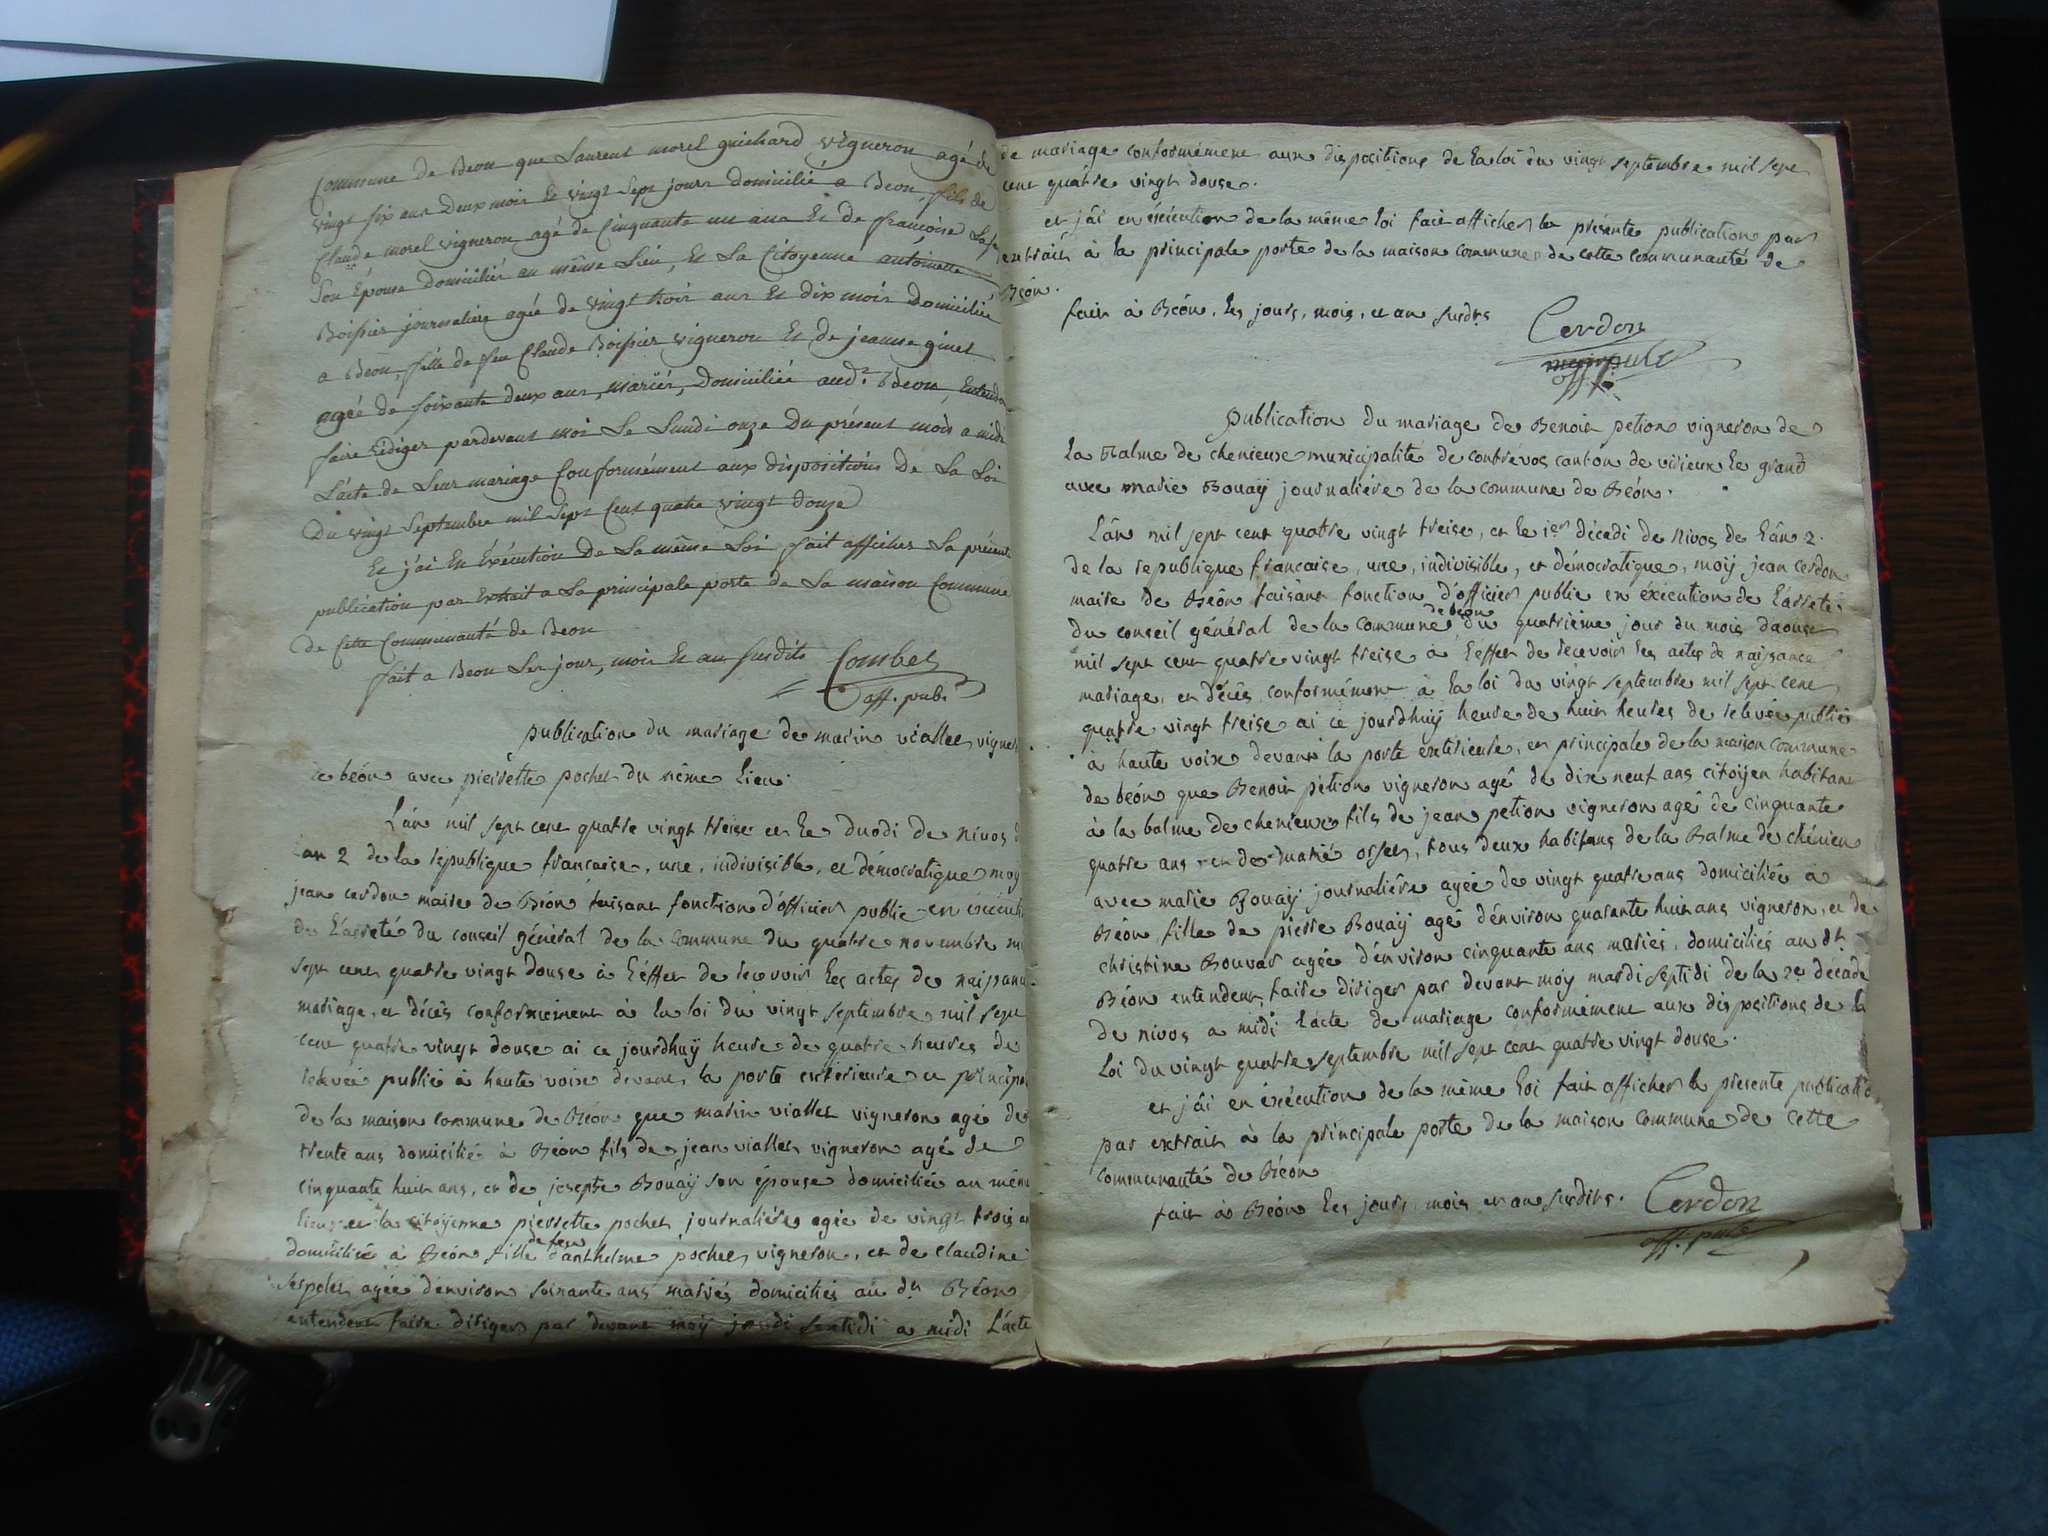 Commune de Beon que Laurent morel guichard vigneron agé de
vingt six ans deux mois Et vingt Sept jours domicilié a Beon, fils de
Claude morel vigneron agé de Cinquante un ans Et de francoise
Son Epouse domiciliée au même Lieu, Et La Citoyenne antoinette
Boissier journaliere agée de vingt trois ans Et dix mois domiciliée
a Beon, fille de feu Claude Boissier vigneron Et de jeanne ginet
agée de soixante deux ans, mariés, domiciliée aud.t Beon, Entend
faire rédiger pardevant moi Le Lundi onze du présent mois a midi
L'acte de Leur mariage Conformément aux dispositions De La Loi
Du vingt Septembre mil Sept Cent quatre vingt douze
Et j'ai En Exécution De La même Loi fait afficher La présente
publication par Extrait a La principale porte de La maison Commune
de Cette Communauté de Beon
fait a Beon Les jour, mois Et an susdits Combet
off. pub.
publication du mariage de marin viallet, vigner
de beón avec pierrette pochet du même lieu.
L'ân mil sept cent quatre vingt treise et le duodi de nivos d
an 2 de la republique francaise, une, indivisible, et démocratique moy
jean cerdon maire de Béón faisant fonction d'officier public en éxécuti
de l'arreté du conseil général de la commune du quatre novembre mi
sept cent quatre vingt douse à l'éffet de recevoir les actes de naissance
mariage, et décès conformement à la loi du vingt septembre mil sept
cent quatre vingt douse ai ce jourdhuÿ heure de quatre heures de
relevée publié à haute voix devant la porte exterieure et principa
de la maison commune de Béón que marin viallet vigneron agé de
trente ans domicilié à Béón fils de jean viallet vigneron agé de
cinquante huit ans, et de josepte Bouaÿ son épouse domiciliée au mêm
lieu et la citoÿenne piérrette pochet journaliére agée de vingt trois a
domiciliée à Béón fille de feu d'anthelme pochet vigneron, et de claudine
agée d'environ soixante ans mariés domiciliés au dt Béón
entendent faire diriger par devant moÿ jeudi septidi a midi l'acte
de mariage conformément aux dispositions de la loi du vingt septembre mil sept
cent quatre vingt douse.
et j'âi en éxécution de la même loi fait afficher la présente publication par
extrait à la principale porte de la maison commune de cette communauté de
Béón.
fait à Béón, les jours, mois, et an susdts Cerdon
off. p.
publication du mariage de Benoit petion vigneron de
la Balme de chenieux municipalité de contrévos canton de virieux le grand
avec marie Bouaÿ journaliére de la commune de Béón.
L'ân mil sept cent quatre vingt treise, et le 1er décadi de nivos de l'ân 2.
de la republique francaise, une, indivisible, et démocratique, moÿ jean cerdon
maire de Béón faisant fonction d'officier public en éxécution de l'arreté
du conseil général de la commune de béon du quatriéme jour du mois daoust
mil sept cent quatre vingt treise à l'éffet de recevoir les actes de naissance
mariage, et décès conformément à la loi du vingt septembre mil sept cent
quatre vingt treise ai ce jourdhuÿ heure de huit heures de relevée publié
à haute voix devant la porte extérieure, et principale de la maison commune
de béón que Benoit pétion vigneron agé de dix neuf ans citoÿen habitant
à la balme de chenieux fils de jean petion vigneron agé de cinquante
quatre ans et de marie orset, tous deux habitans de la Balme de chénieu
avec marie Bouaÿ journaliére agée de vingt quatre ans domiciliée à
Béón fille de pierre Bouaÿ agé d'énviron quarante huit ans vigneron, et de
christine Bouvar agée d'énviron cinquante ans mariés, domiciliés au dt
Béón entendent, faire diriger par devant moy mardi septidi de la 2e décade
de nivos a midi l'acte de mariage conformément aux dispositions de la
loi du vingt quatre septembre mil sept cent quatre vingt douse.
et j'âi en éxécution de la même loi fait afficher la presente publicatio
par extrait à la principale porte de la maison commune de cette
communauté de Béón
fait à Béón les jours mois et an susdits. Cerdon
off. pub